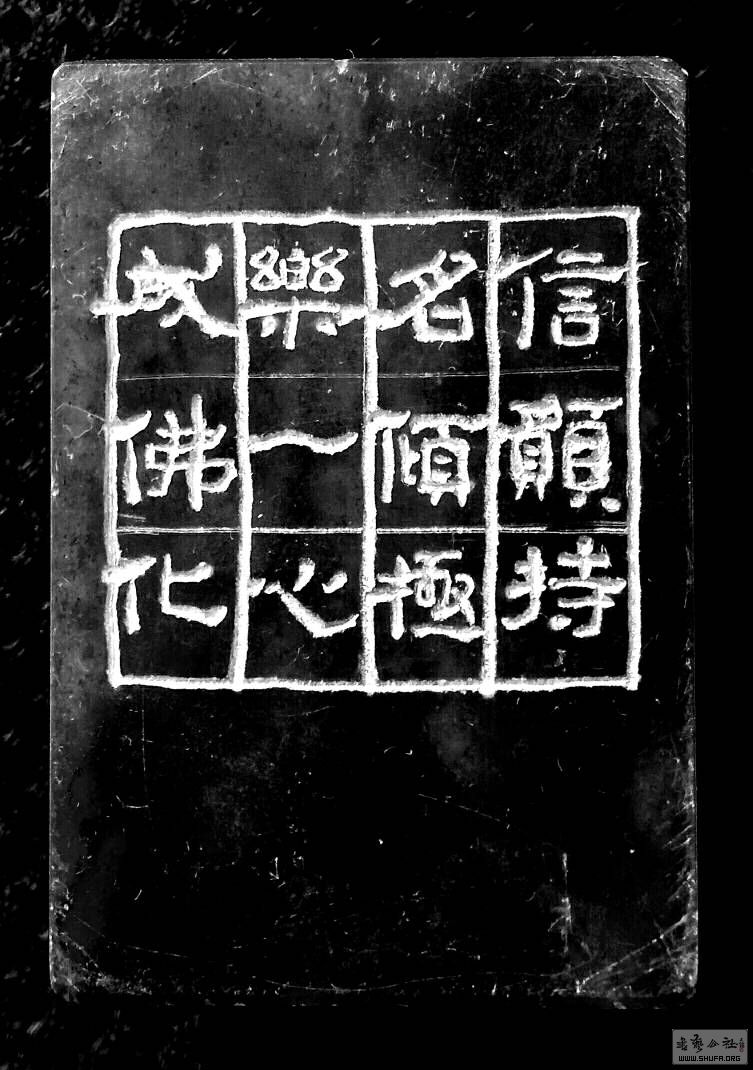 信願持
名傾極
樂一心
成佛化
书艺公社
WWW.SHUFA.ORG